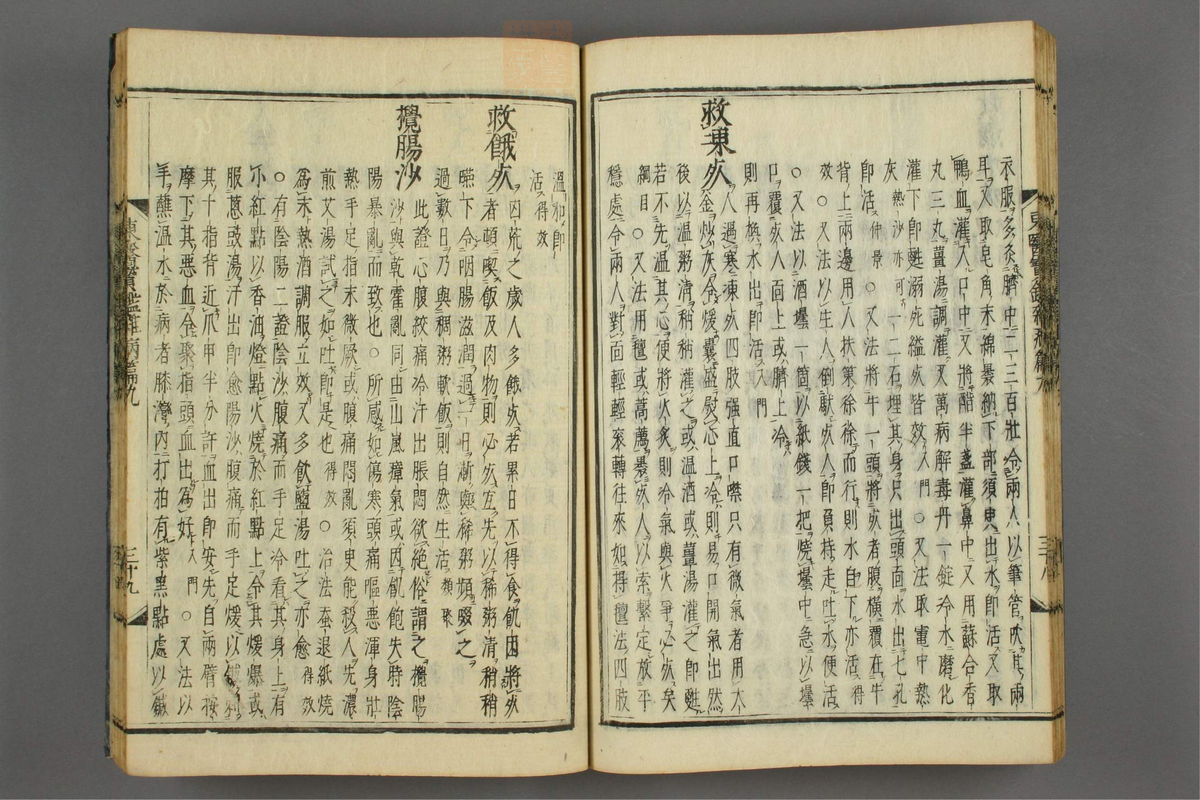 衣服多灸臍中二三百壯令兩人以筆管吹其兩
耳又取皂角末綿裹納下部須臾出水即活又取
鴨血灌入口中又將醋半盞灌鼻中又用蘇合香
丸三丸薑湯調灌又萬病解毒丹一錠冷水磨化
灌下即甦溺死縊死皆效入門○又法取竈中熱
灰熱沙亦可一二石埋其身只出頭面水出七孔
即活仲景○又法將牛一頭將死者腹橫覆在牛
背上兩邊用人扶策徐徐而行則水自下亦活得
效○又法以生人倒馱死人即負持走吐水便活
○又法以酒壜一箇以紙錢一把燒壜中急以壜
口覆死人面上或臍上冷
則再換水出即活入門
救凍死
人遇寒凍死四肢强直口噤只有微氣者用大
釜炒灰令煖囊盛熨心上冷則易口開氣出然
後以溫粥清稍稍灌之或溫酒或薑湯灌之即甦
若不先溫其心便將火炙則冷氣與火爭必死矣
綱目○又法用氊或藁薦裹死人以索繫定放平
穩處令兩人對面輕輕衮轉往來如得氊法四肢
東醫寶鑑雜病篇九
三十八
溫和即
活得效
救餓死
凶荒之歲人多餓死若累日不得食飢困將死
者頓喫飯及肉物則必死宜先以稀粥清稍稍
嚥下令咽腸滋潤過一日漸與稀粥頻啜之
過數日乃與稠粥軟飯則自然生活類聚
攪腸沙
此證心腹絞痛冷汗出脹悶欲絶俗謂之攪腸
沙與乾霍亂同由山嵐瘴氣或因飢飽失時陰
陽暴亂而致也○所感如傷寒頭痛嘔惡渾身壯
熱手足指末微厥或腹痛悶亂須臾能殺人先濃
煎艾湯試之如吐即是也得效○治法蚕退紙燒
爲末熱酒調服立效又多飮鹽湯吐之亦愈得效
○有陰陽二證陰沙腹痛而手足冷看其身上有
小紅點以香油燈點火燒於紅點上令其煖爆或
服蔥豉湯汗出即愈陽沙腹痛而手足煖以鍼刺
其十指背近爪甲半分許血出即安先自兩臂按
摩下其惡血令聚指頭血出爲好入門○又法以
手蘸溫水於病者膝灣內打拍有紫黑點處以鍼
東醫寶鑑雜病篇九
三十九